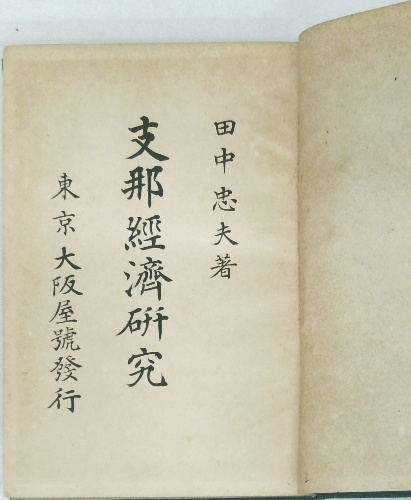 田中忠夫著
支那經濟硏究
東京大阪屋號發行